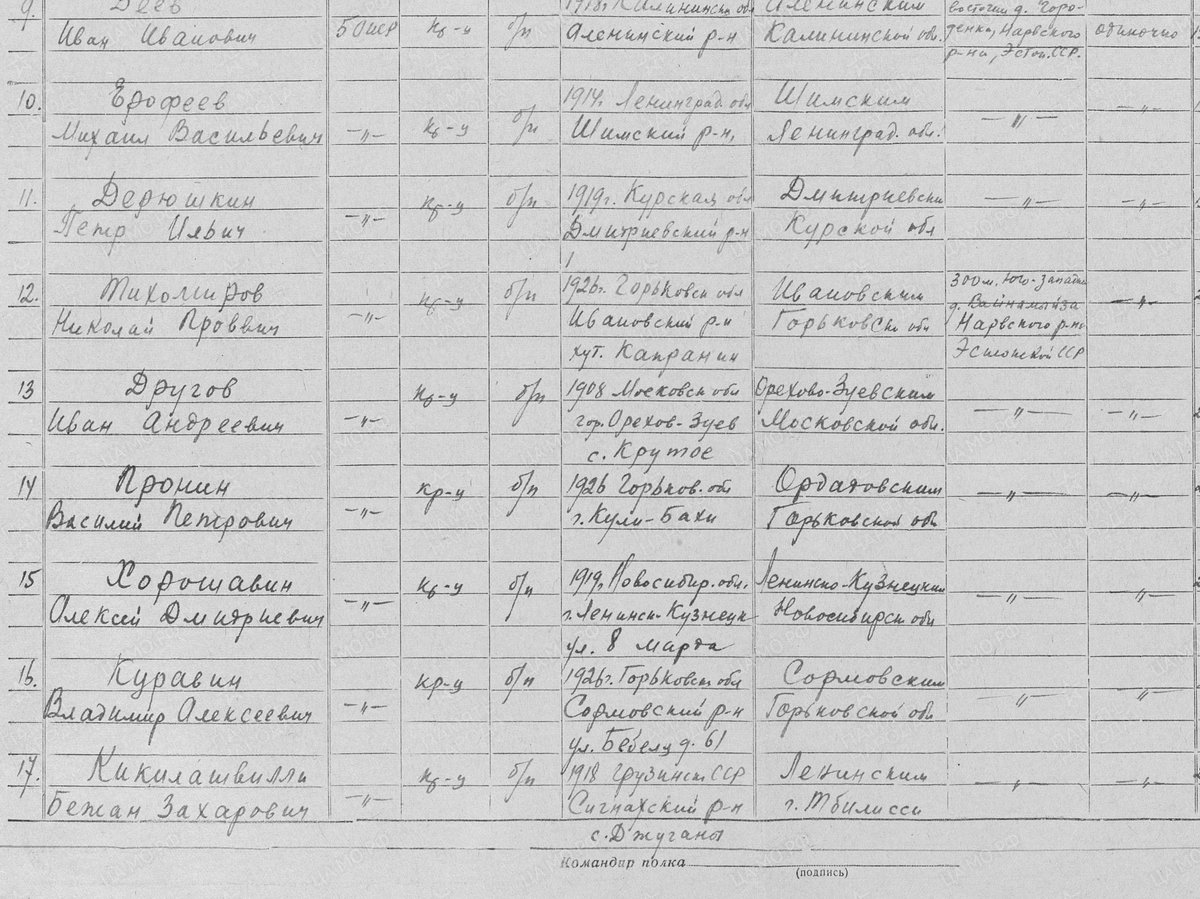 9. Деев 1918г. Калининск. обл Аленинским восточн д. Горо-
Иван Иванович 50шср кр-ц б/п Аленинский р-н Калининской обл. денка, Нарвского одиночно
р-на, Эстон. ССР.
10. Ерофеев 1914г Ленинград. обл Шимским
Михаил Васильевич —"— кр-ц б/п Шимский р-н, Ленинград. обл. —"— —"—
11. Дерюшкин 1919г. Курская обл Дмитриевски
Петр Ильич —"— кр-ц б/п Дмитриевский р-н Курской обл —"— —"—
12. Тихомиров 1926г. Горьковск обл Ивановским 300м. Юго-западн
Николай Проввич —"— кр-ц б/п Ивановский р-н Горьковск обл д. Вайнамыйза —"—
хут. Капранин Нарвского р-на
Эстонской ССР
13 Другов 1908 Московск обл Орехово-Зуевским
Иван Андреевич —"— кр-ц б/п гор. Орехов-Зуев Московской обл. —"— —"—
с. Крутое
14 Пронин 1926 Горьков. обл Ордатовским
Василий Петрович —"— кр-ц б/п г. Кули-Баки Горьковской обл —"— —"—
15 Хорошавин 1919г. Новосибир. обл. Ленинско-Кузнецким
Алексей Дмитриевич —"— кр-ц б/п г. Ленинск-Кузнецк Новосибирск обл —"— —"—
ул. 8 марта
16. Куравин 1926г. Горьковск обл Сормовским
Владимир Алексеевич —"— кр-ц б/п Сормовский р-н Горьковской обл —"— —"—
ул. Бебеля д. 61
17. Кикилашвилли 1918 Грузинск ССР Ленинским
Бежан Захарович —"— кр-ц б/п Сигнахский р-н г. Тбилисси —"— —"—
с. Джуганы
Командир полка
(подпись)